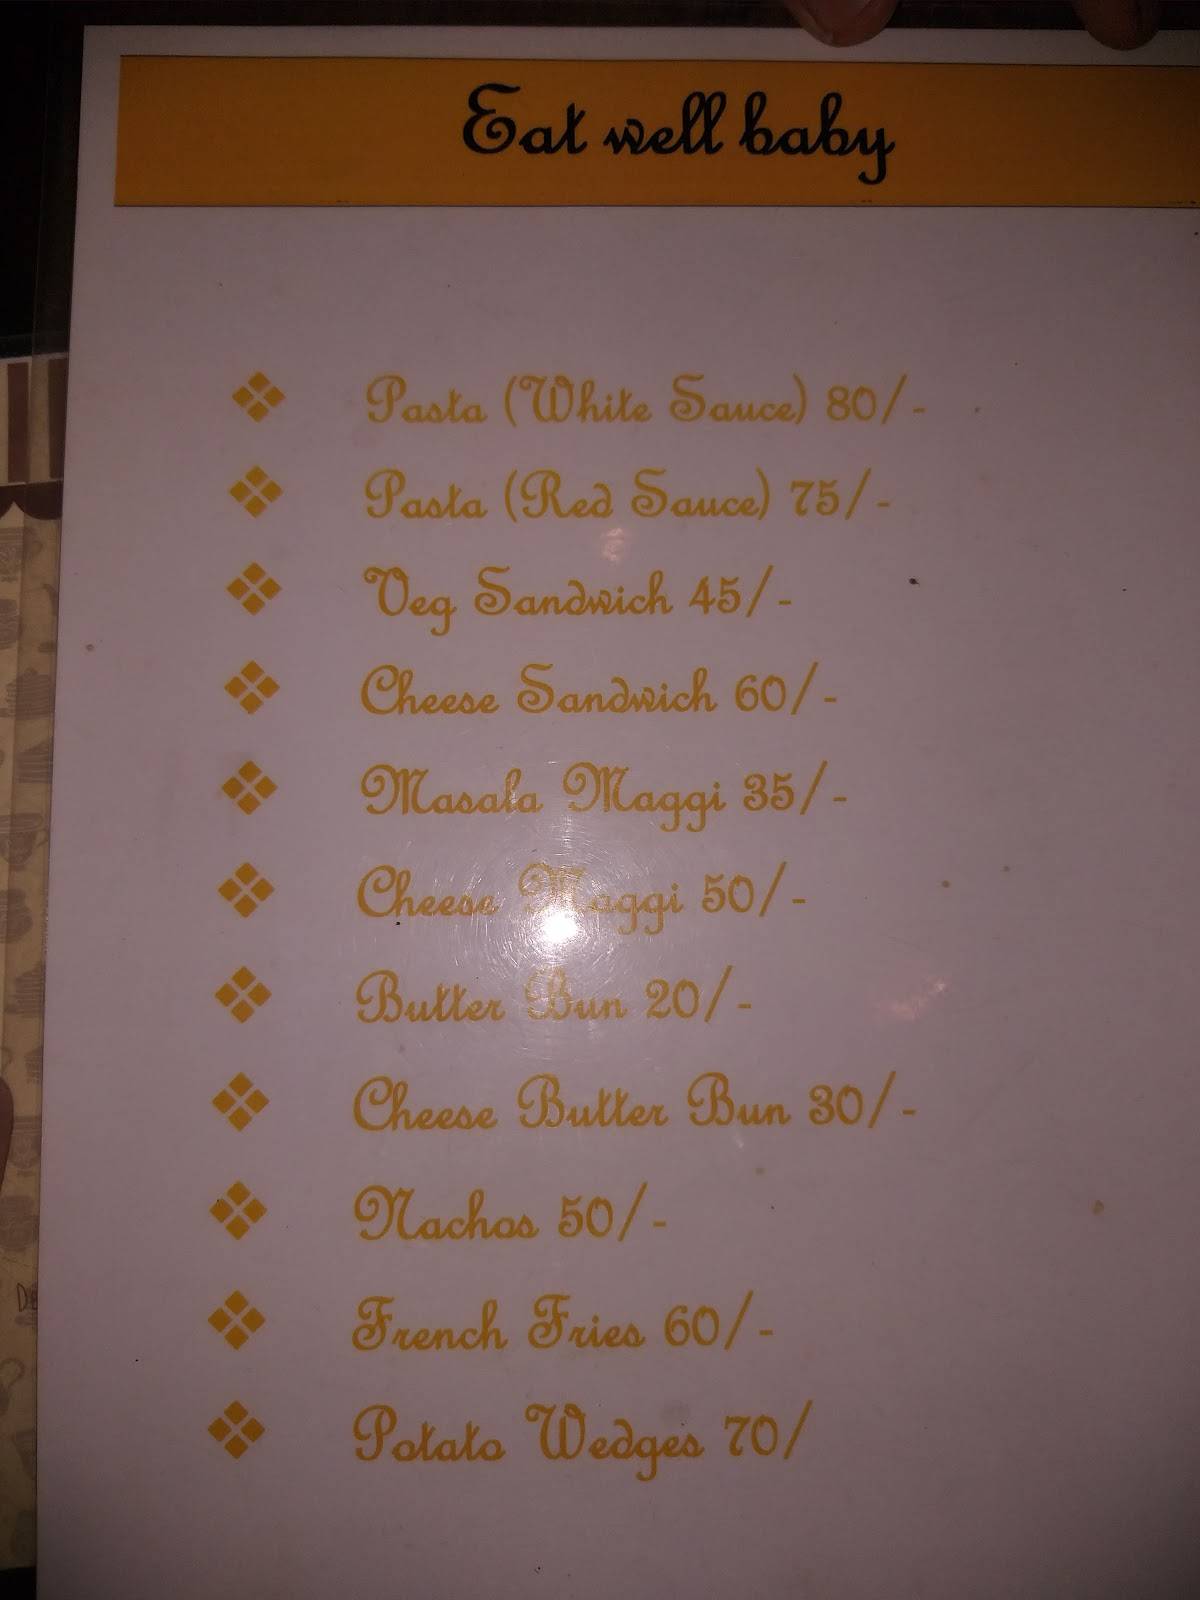 Eat well baby
Pasta (White Sauce) 80/-
Pasta (Red Sauce) 75/-
Veg Sandwich 45/-
Cheese Sandwich 60/-
Masala Maggi 35/-
Cheese Maggi 50/-
Butter Bun 20/-
Cheese Butter Bun 30/-
Nachos 50/-
French Fries 60/-
Potato Wedges 70/